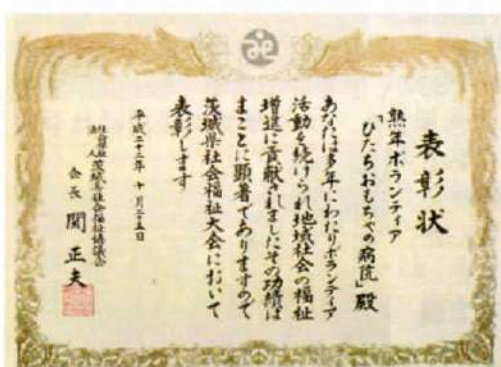 表彰状
熟年ボランティア
「ひたちおもちゃの病院」殿
あなたは多年にわたりボランティア
活動を続けられ地域社会の福祉
増進に貢献されましたその功績は
まことに顕著でありますので
茨城県社会福祉大会において
表彰します
平成二十二年十月二十五日
社会福祉法人 茨城県社会福祉協議会
会長 関 正夫